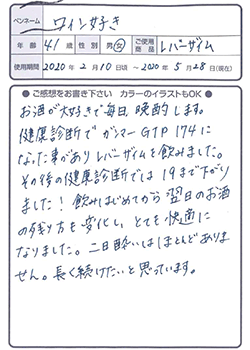 ペンネーム ワイン好き
年齢 41才 性別 男・女 ご使用商品 レバーザイム
使用期間 2020年2月10日頃〜2020年5月28日(現在)
●ご感想をお書き下さい カラーのイラストもOK●
お酒が大好きで毎日晩酌します。
健康診断でガンマーGTP 174に
なった事がありレバーザイムを飲みました。
その後の健康診断では19まで下がり
ました！飲みはじめてから翌日のお酒
の残り方も変化し、とても快適に
なりました。二日酔いはほとんどありま
せん。長く続けたいと思っています。